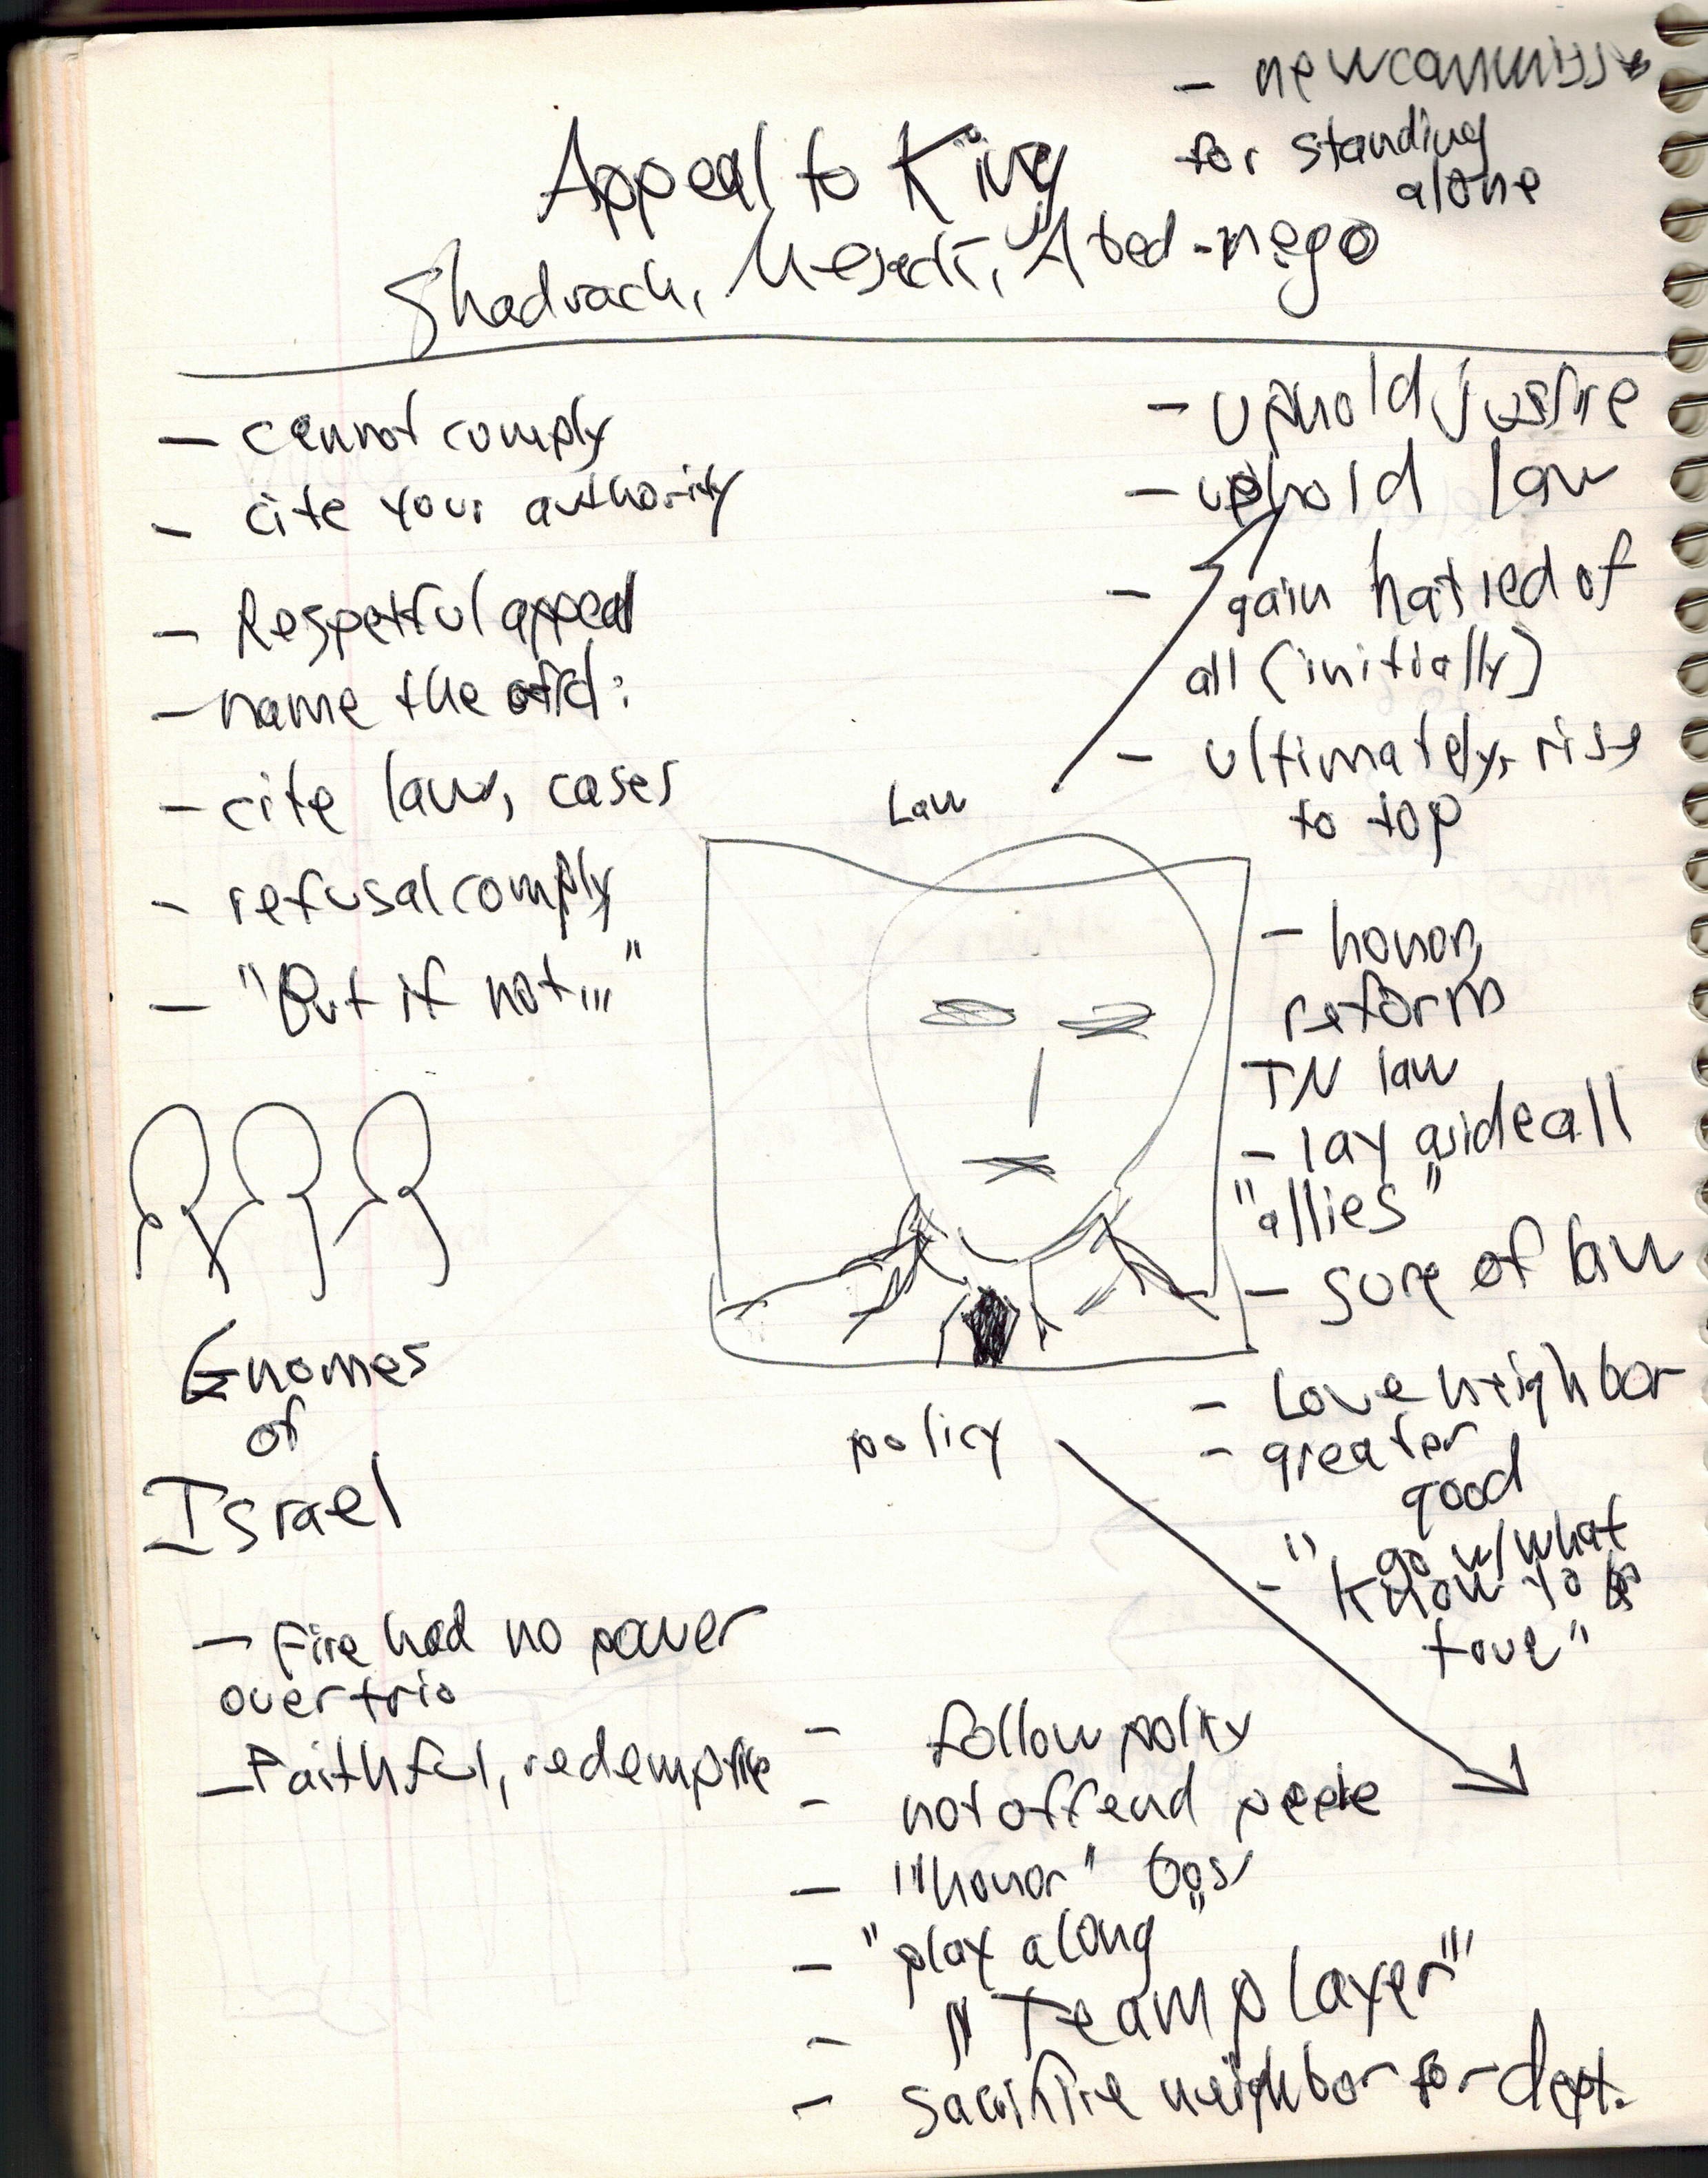 for standing
alone
Appeal to King
Shadrach, Mesach, Abed-nego
- cannot comply
- cite your authority
- Respetful appeal
- name the
- cite law, cases
- refusal comply
- "But if not..."
Gnomes
of
Israel
- Fire had no power
over trio
- Faithful,
Law
policy
- uphold
- uphold law
- gain hatred of
all (initially)
- ultimately, rise
to top
- honor,
reform
TN law
- lay aside all
"allies"
- sure of law
- Love neighbor
- greater
good
- " go w/what
know to be
"
- follow policy
- not offend
- "honor"
- "play along"
- "Team player"
- neighbor for dept.